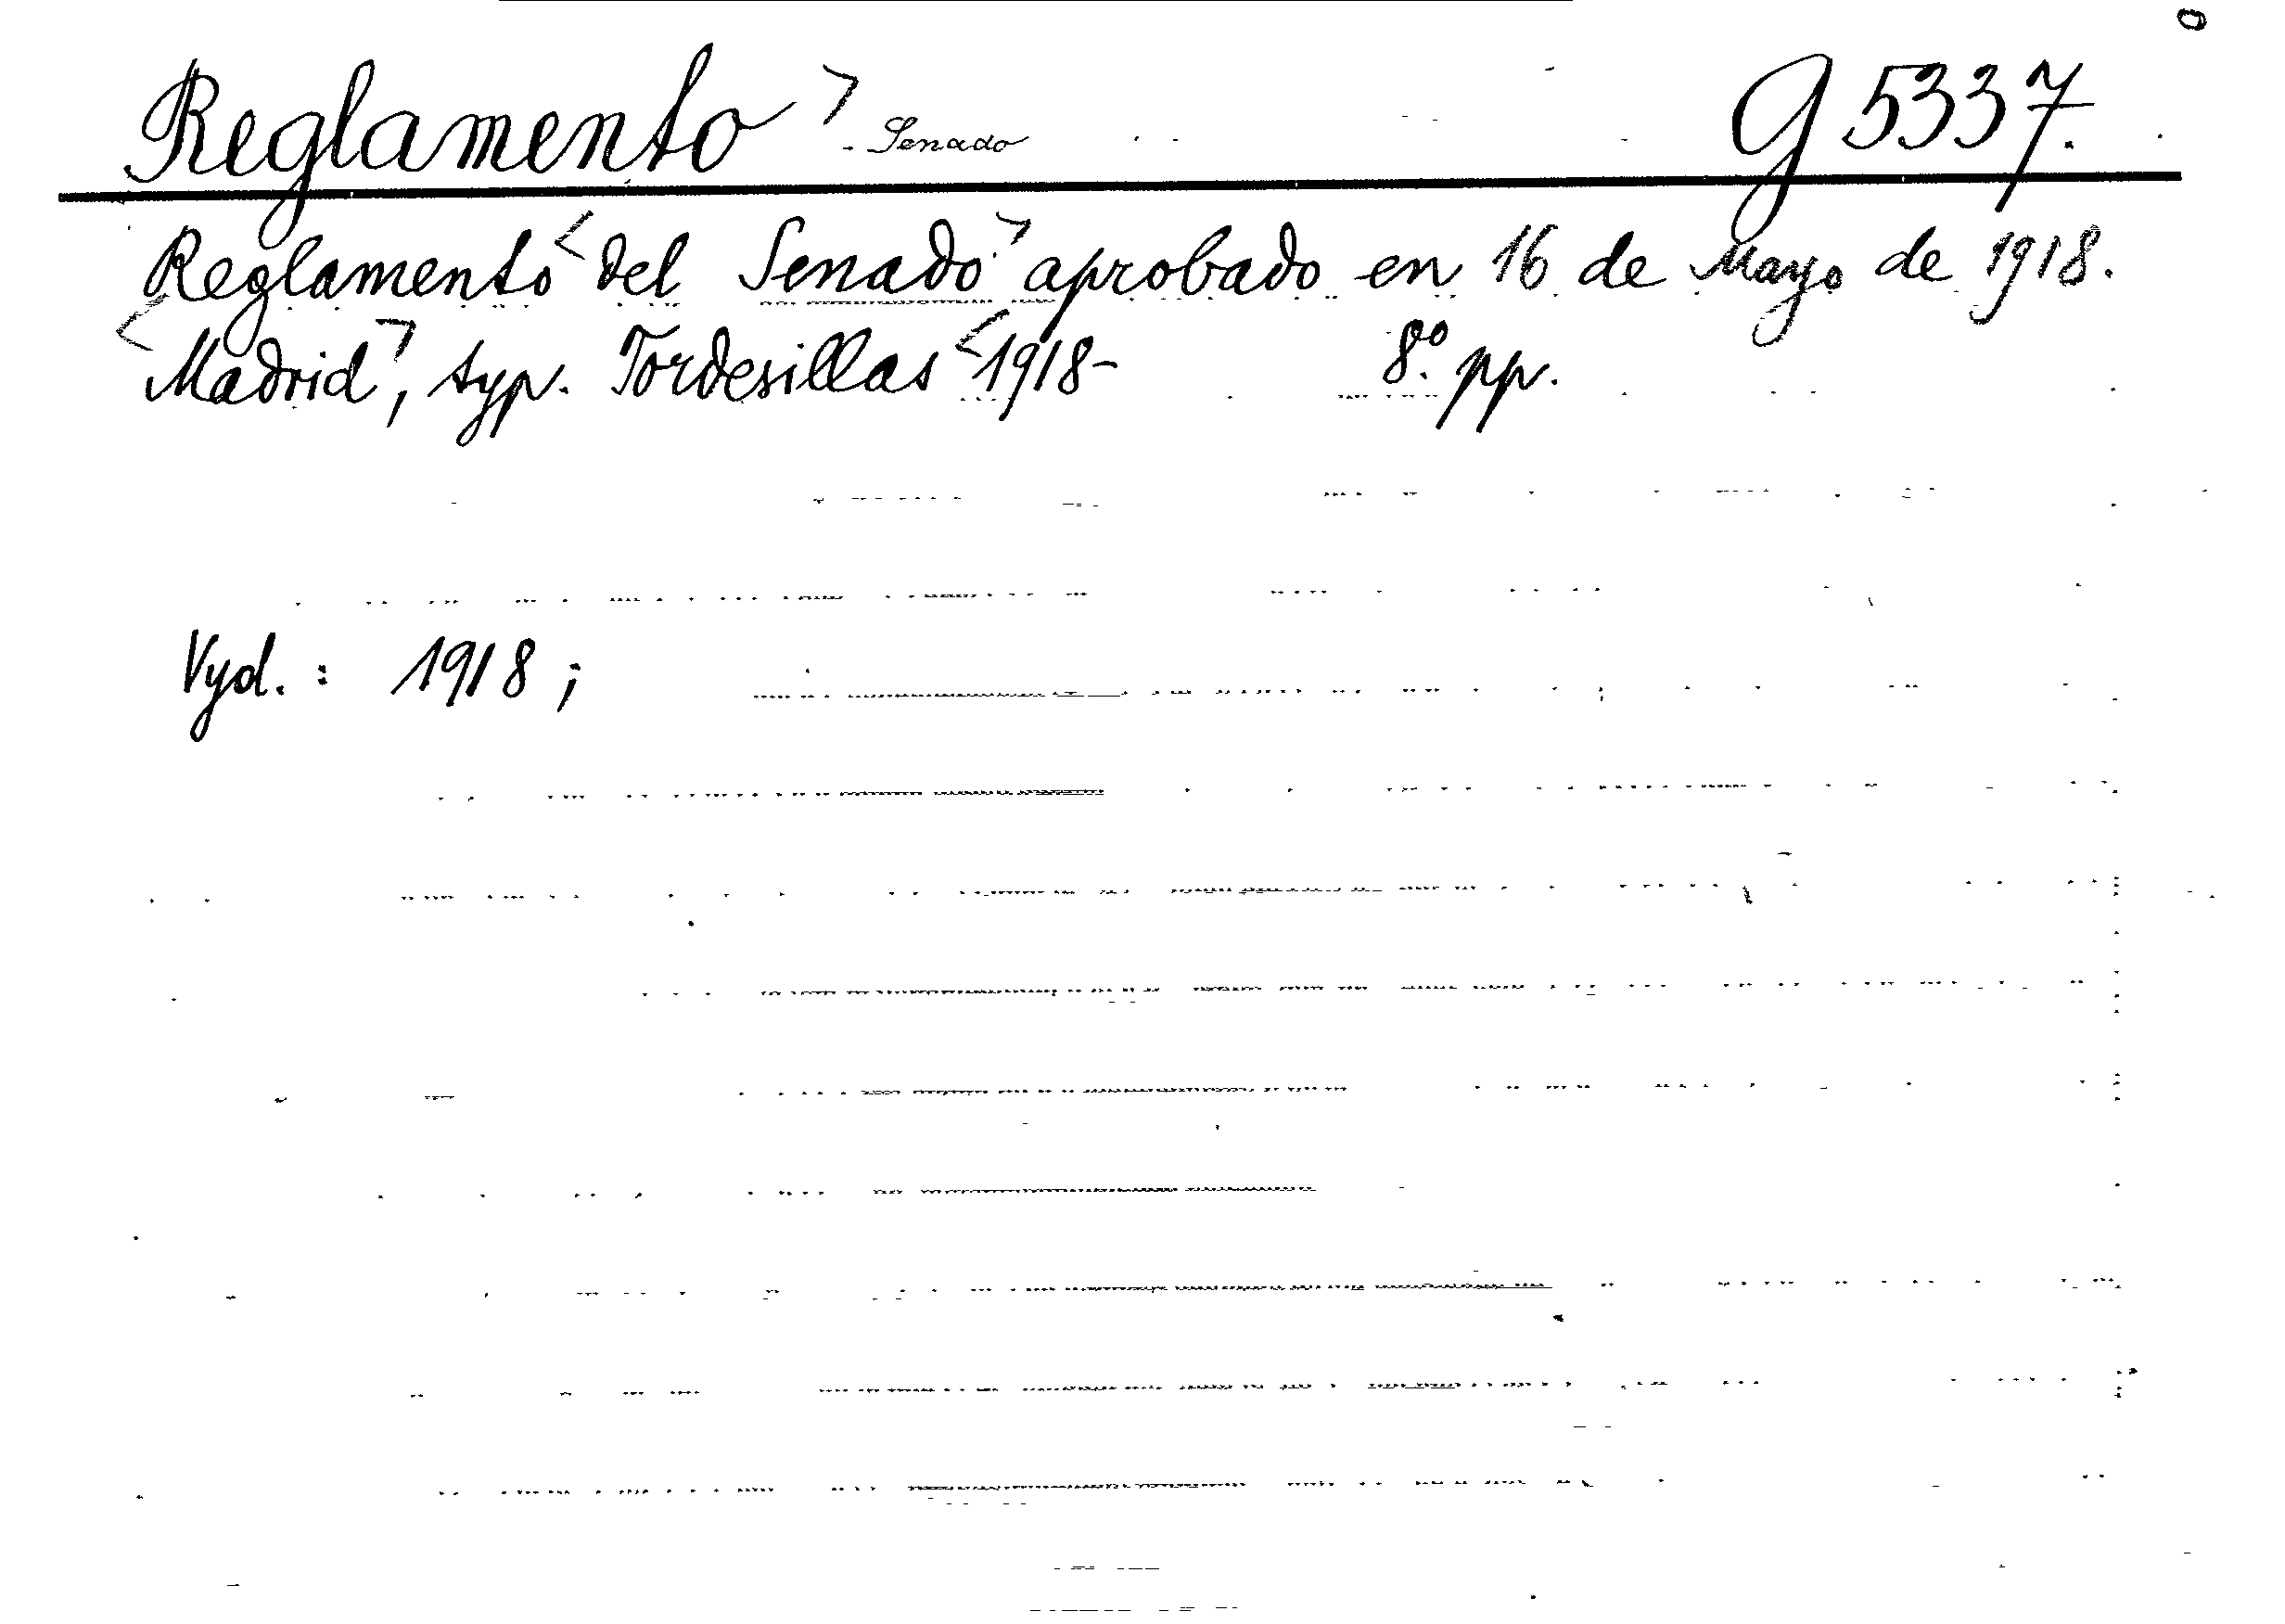 Reglamento > - Senado G 5337.
Reglamento < del Senado > aprobado en 16 de Mayo de 1918.
< Madrid >, typ. Tordesillas < 1918- 8.º pp.
Vyd. : 1918 ;